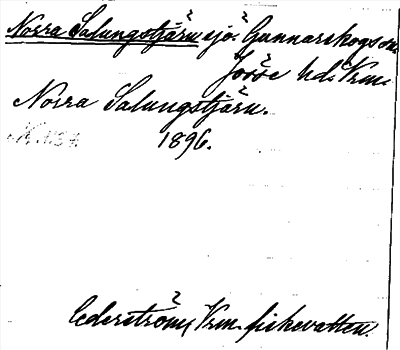 Norra Salungstjärn sjö. Gunnarskogs sn.
Jösse hd. Vrm.
Norra Salungstjärn.
1896.
Cederström, Vrm. fiskevatten.